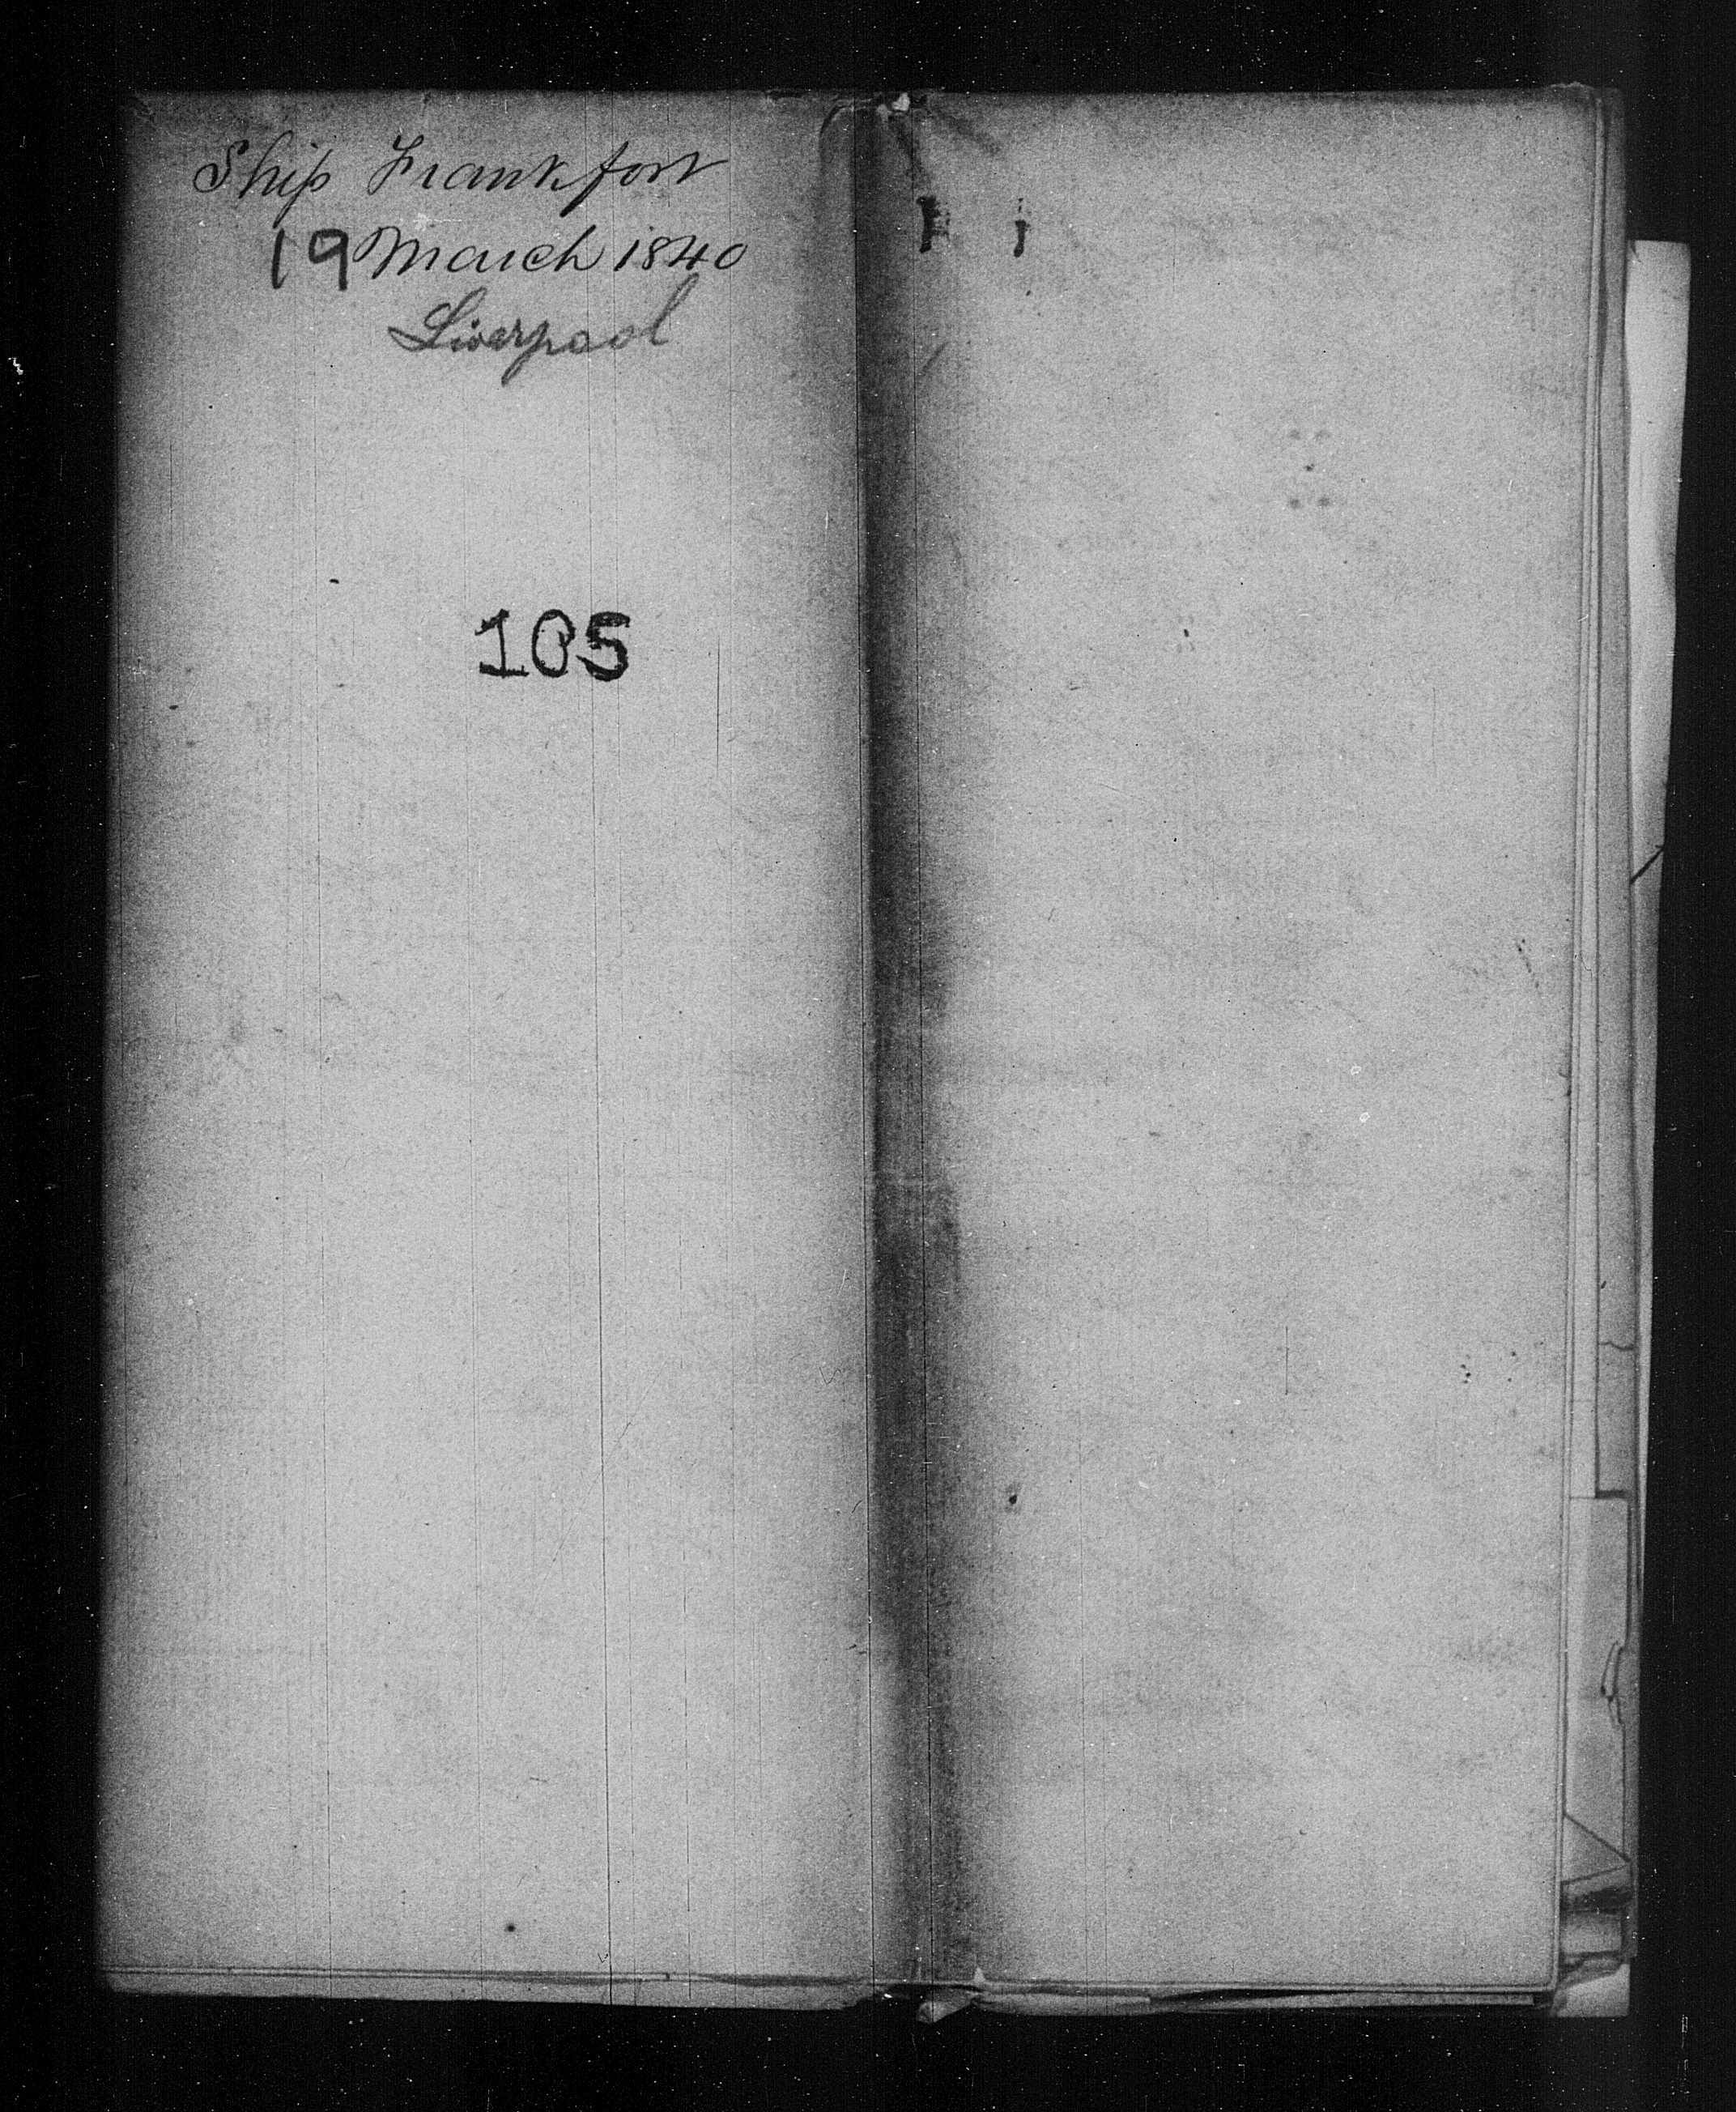 Ship Frankfort
19 March 1840
Liverpool
105